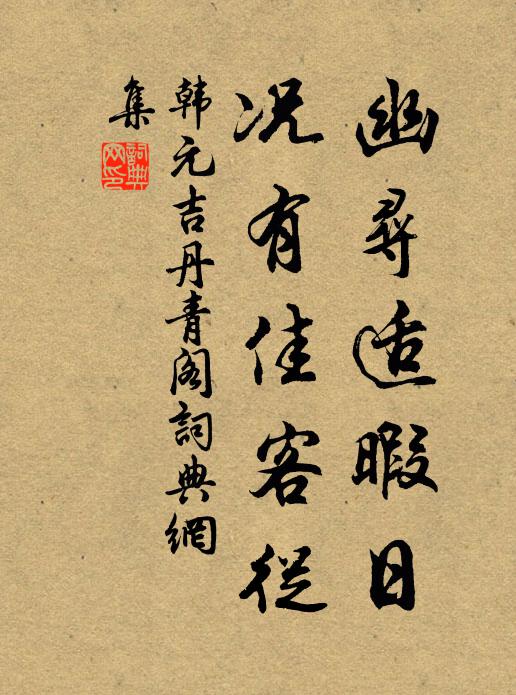 幽尋适暇日
况有佳客從
韩元吉丹青阁詞典網
集
詞典网印